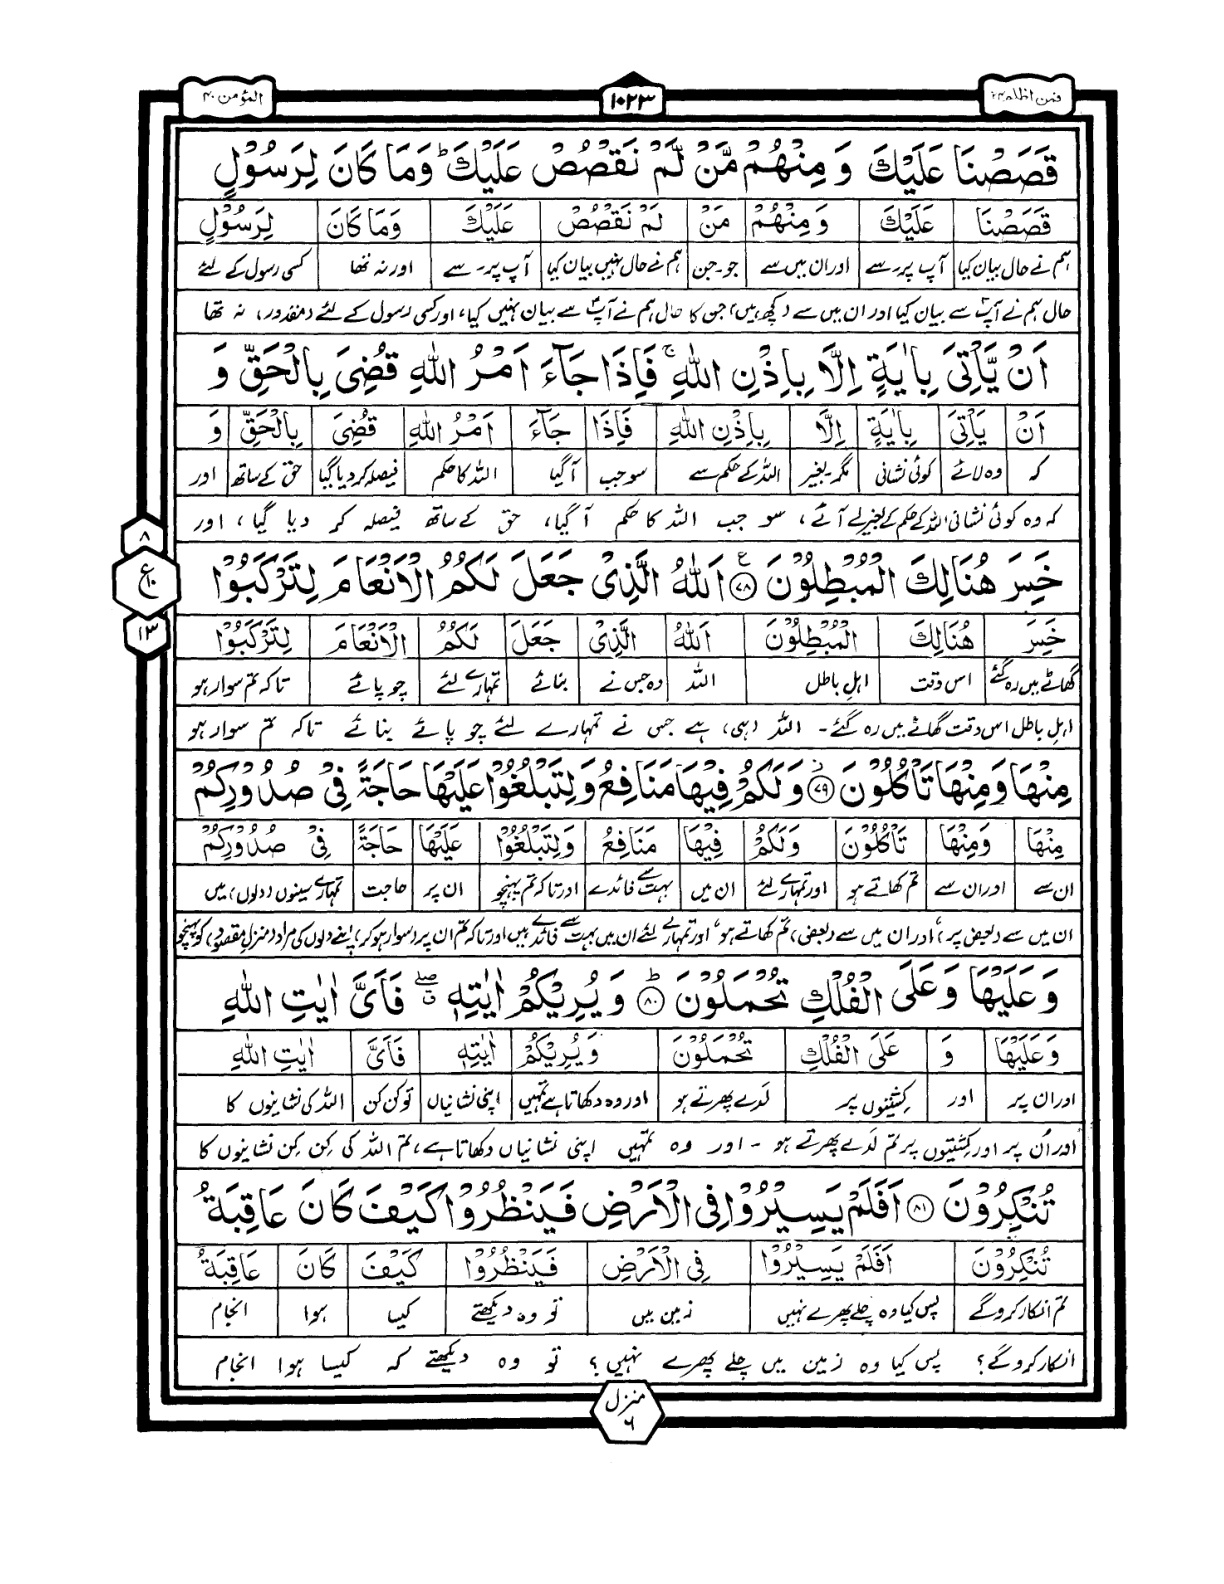 فمن اظلم ۲۴
۱۰۲۳
المؤمن ۴۰
قَصَصْنَا عَلَيْكَ وَ مِنْهُمْ مَّنْ لَّمْ نَقْصُصْ عَلَيْكَ ؕ وَمَا كَانَ لِرَسُوْلٍ
قَصَصْنَا عَلَيْكَ وَ مِنْهُمْ مَنْ لَمْ نَقْصُصْ عَلَيْكَ وَمَا كَانَ لِرَسُوْلٍ
ہم نے حال بیان کیا آپ پر۔سے اور ان میں سے جو۔جن ہم نے حال نہیں بیان کیا آپ پر۔سے اور نہ تھا کسی رسول کے لئے
حال ہم نے آپؐ سے بیان کیا اور ان میں سے (کچھ ہیں) جن کا حال ہم نے آپؐ سے بیان نہیں کیا، اور کسی رسول کے لئے (مقدور) نہ تھا
اَنْ يَّاْتِيَ بِاٰيَةٍ اِلَّا بِاِذْنِ اللّٰهِ ۚ فَاِذَا جَآءَ اَمْرُ اللّٰهِ قُضِيَ بِالْحَقِّ وَ
اَنْ يَاْتِيَ بِاٰيَةٍ اِلَّا بِاِذْنِ اللّٰهِ فَاِذَا جَآءَ اَمْرُ اللّٰهِ قُضِيَ بِالْحَقِّ وَ
کہ وہ لائے کوئی نشانی مگر۔بغیر اللہ کے حکم سے سو جب آگیا اللہ کا حکم فیصلہ کر دیا گیا حق کے ساتھ اور
کہ وہ کوئی نشانی اللہ کے حکم کے بغیر لے آئے، سو جب اللہ کا حکم آ گیا، حق کے ساتھ فیصلہ کر دیا گیا، اور
خَسِرَ هُنَالِكَ الْمُبْطِلُوْنَ ﴿۷۸﴾ ع اَللّٰهُ الَّذِيْ جَعَلَ لَكُمُ الْاَنْعَامَ لِتَرْكَبُوْا
۸
ع
۱۰
۱۳
خَسِرَ هُنَالِكَ الْمُبْطِلُوْنَ اَللّٰهُ الَّذِيْ جَعَلَ لَكُمُ الْاَنْعَامَ لِتَرْكَبُوْا
گھاٹے میں رہ گئے اس وقت اہلِ باطل اللہ وہ جس نے بنائے تمہارے لئے چوپائے تاکہ تم سوار ہو
اہلِ باطل اس وقت گھاٹے میں رہ گئے۔ اللہ (ہی) ہے جس نے تمہارے لئے چوپائے بنائے تاکہ تم سوار ہو
مِنْهَا وَمِنْهَا تَاْكُلُوْنَ ﴿۷۹﴾ ؗ وَلَكُمْ فِيْهَا مَنَافِعُ وَلِتَبْلُغُوْا عَلَيْهَا حَاجَةً فِيْ صُدُوْرِكُمْ
مِنْهَا وَمِنْهَا تَاْكُلُوْنَ وَلَكُمْ فِيْهَا مَنَافِعُ وَلِتَبْلُغُوْا عَلَيْهَا حَاجَةً فِيْ صُدُوْرِكُمْ
ان سے اور ان سے تم کھاتے ہو اور تمہارے لئے ان میں بہت سے فائدے اور تاکہ تم پہنچو ان پر حاجت تمہارے سینوں (دلوں) میں
ان میں سے (بعض پر)، اور ان میں سے (بعض) تم کھاتے ہو، اور تمہارے لئے ان میں بہت سے فائدے ہیں اور تاکہ تم ان پر (سوار ہو کر) اپنے دلوں کی مراد (منزل مقصود) کو پہنچو
وَ عَلَيْهَا وَعَلَى الْفُلْكِ تُحْمَلُوْنَ ﴿۸۰﴾ ؕ وَ يُرِيْكُمْ اٰيٰتِهٖ ۖۗ فَاَيَّ اٰيٰتِ اللّٰهِ
وَ عَلَيْهَا وَ عَلَى الْفُلْكِ تُحْمَلُوْنَ وَ يُرِيْكُمْ اٰيٰتِهٖ فَاَيَّ اٰيٰتِ اللّٰهِ
اور ان پر اور کشتیوں پر لدے پھرتے ہو اور وہ دکھاتا ہے تمہیں اپنی نشانیاں تو کن کن اللہ کی نشانیوں کا
اور اُن پر اور کشتیوں پر تم لدے پھرتے ہو ۔ اور وہ تمہیں اپنی نشانیاں دکھاتا ہے، تم اللہ کی کِن کِن نشانیوں کا
تُنْكِرُوْنَ ﴿۸۱﴾ اَفَلَمْ يَسِيْرُوْا فِي الْاَرْضِ فَيَنْظُرُوْا كَيْفَ كَانَ عَاقِبَةُ
تُنْكِرُوْنَ اَفَلَمْ يَسِيْرُوْا فِي الْاَرْضِ فَيَنْظُرُوْا كَيْفَ كَانَ عَاقِبَةُ
تم انکار کرو گے پس کیا وہ چلے پھرے نہیں زمین میں تو وہ دیکھتے کیسا ہوا انجام
انکار کرو گے؟ پس کیا وہ زمین میں چلے پھرے نہیں؟ تو وہ دیکھتے کہ کیسا ہوا انجام
منزل ۶